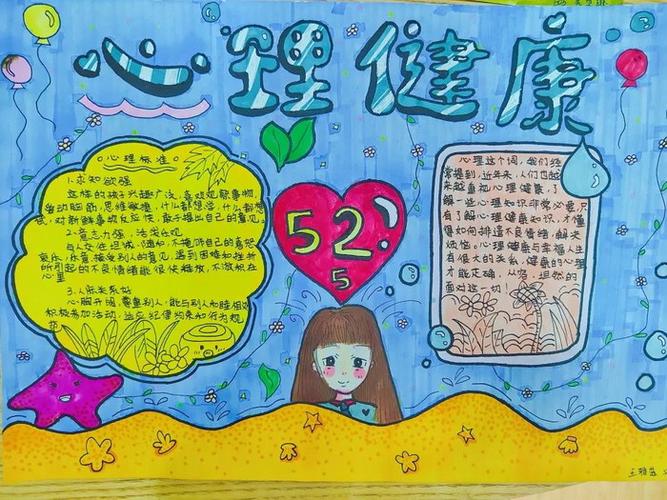 心理健康
心理标准
1.求知欲强
这样的孩子兴趣广泛,喜欢观察事物,
肯动脑筋,思维敏捷,什么都想学,什么都想
试,对新鲜事物反应快,敢于提出自己的意见。
2.意志力强,活泼乐观
与人交往坦诚、随和,不掩饰自己的喜怒
哀乐,乐意接受别人的意见,遇到困难和挫折
所引起的不良情绪能很快释放,不激积在
心里
3.人际关系好
心胸开阔,尊重别人,能与别人和睦相处
积极参加活动,适应纪律约束和行为规
范
52
5
心理这个词,我们经
常提到,近年来,人们也越
来越重视心理健康,了
解一些心理知识非常必要,只
有了解心理健康知识,才懂
得如何排遣不良情绪,解决
烦恼。心理健康与幸福人生
有很大的关系,健康的心理
才能正确、从容、坦然的
面对这一切!
王雅